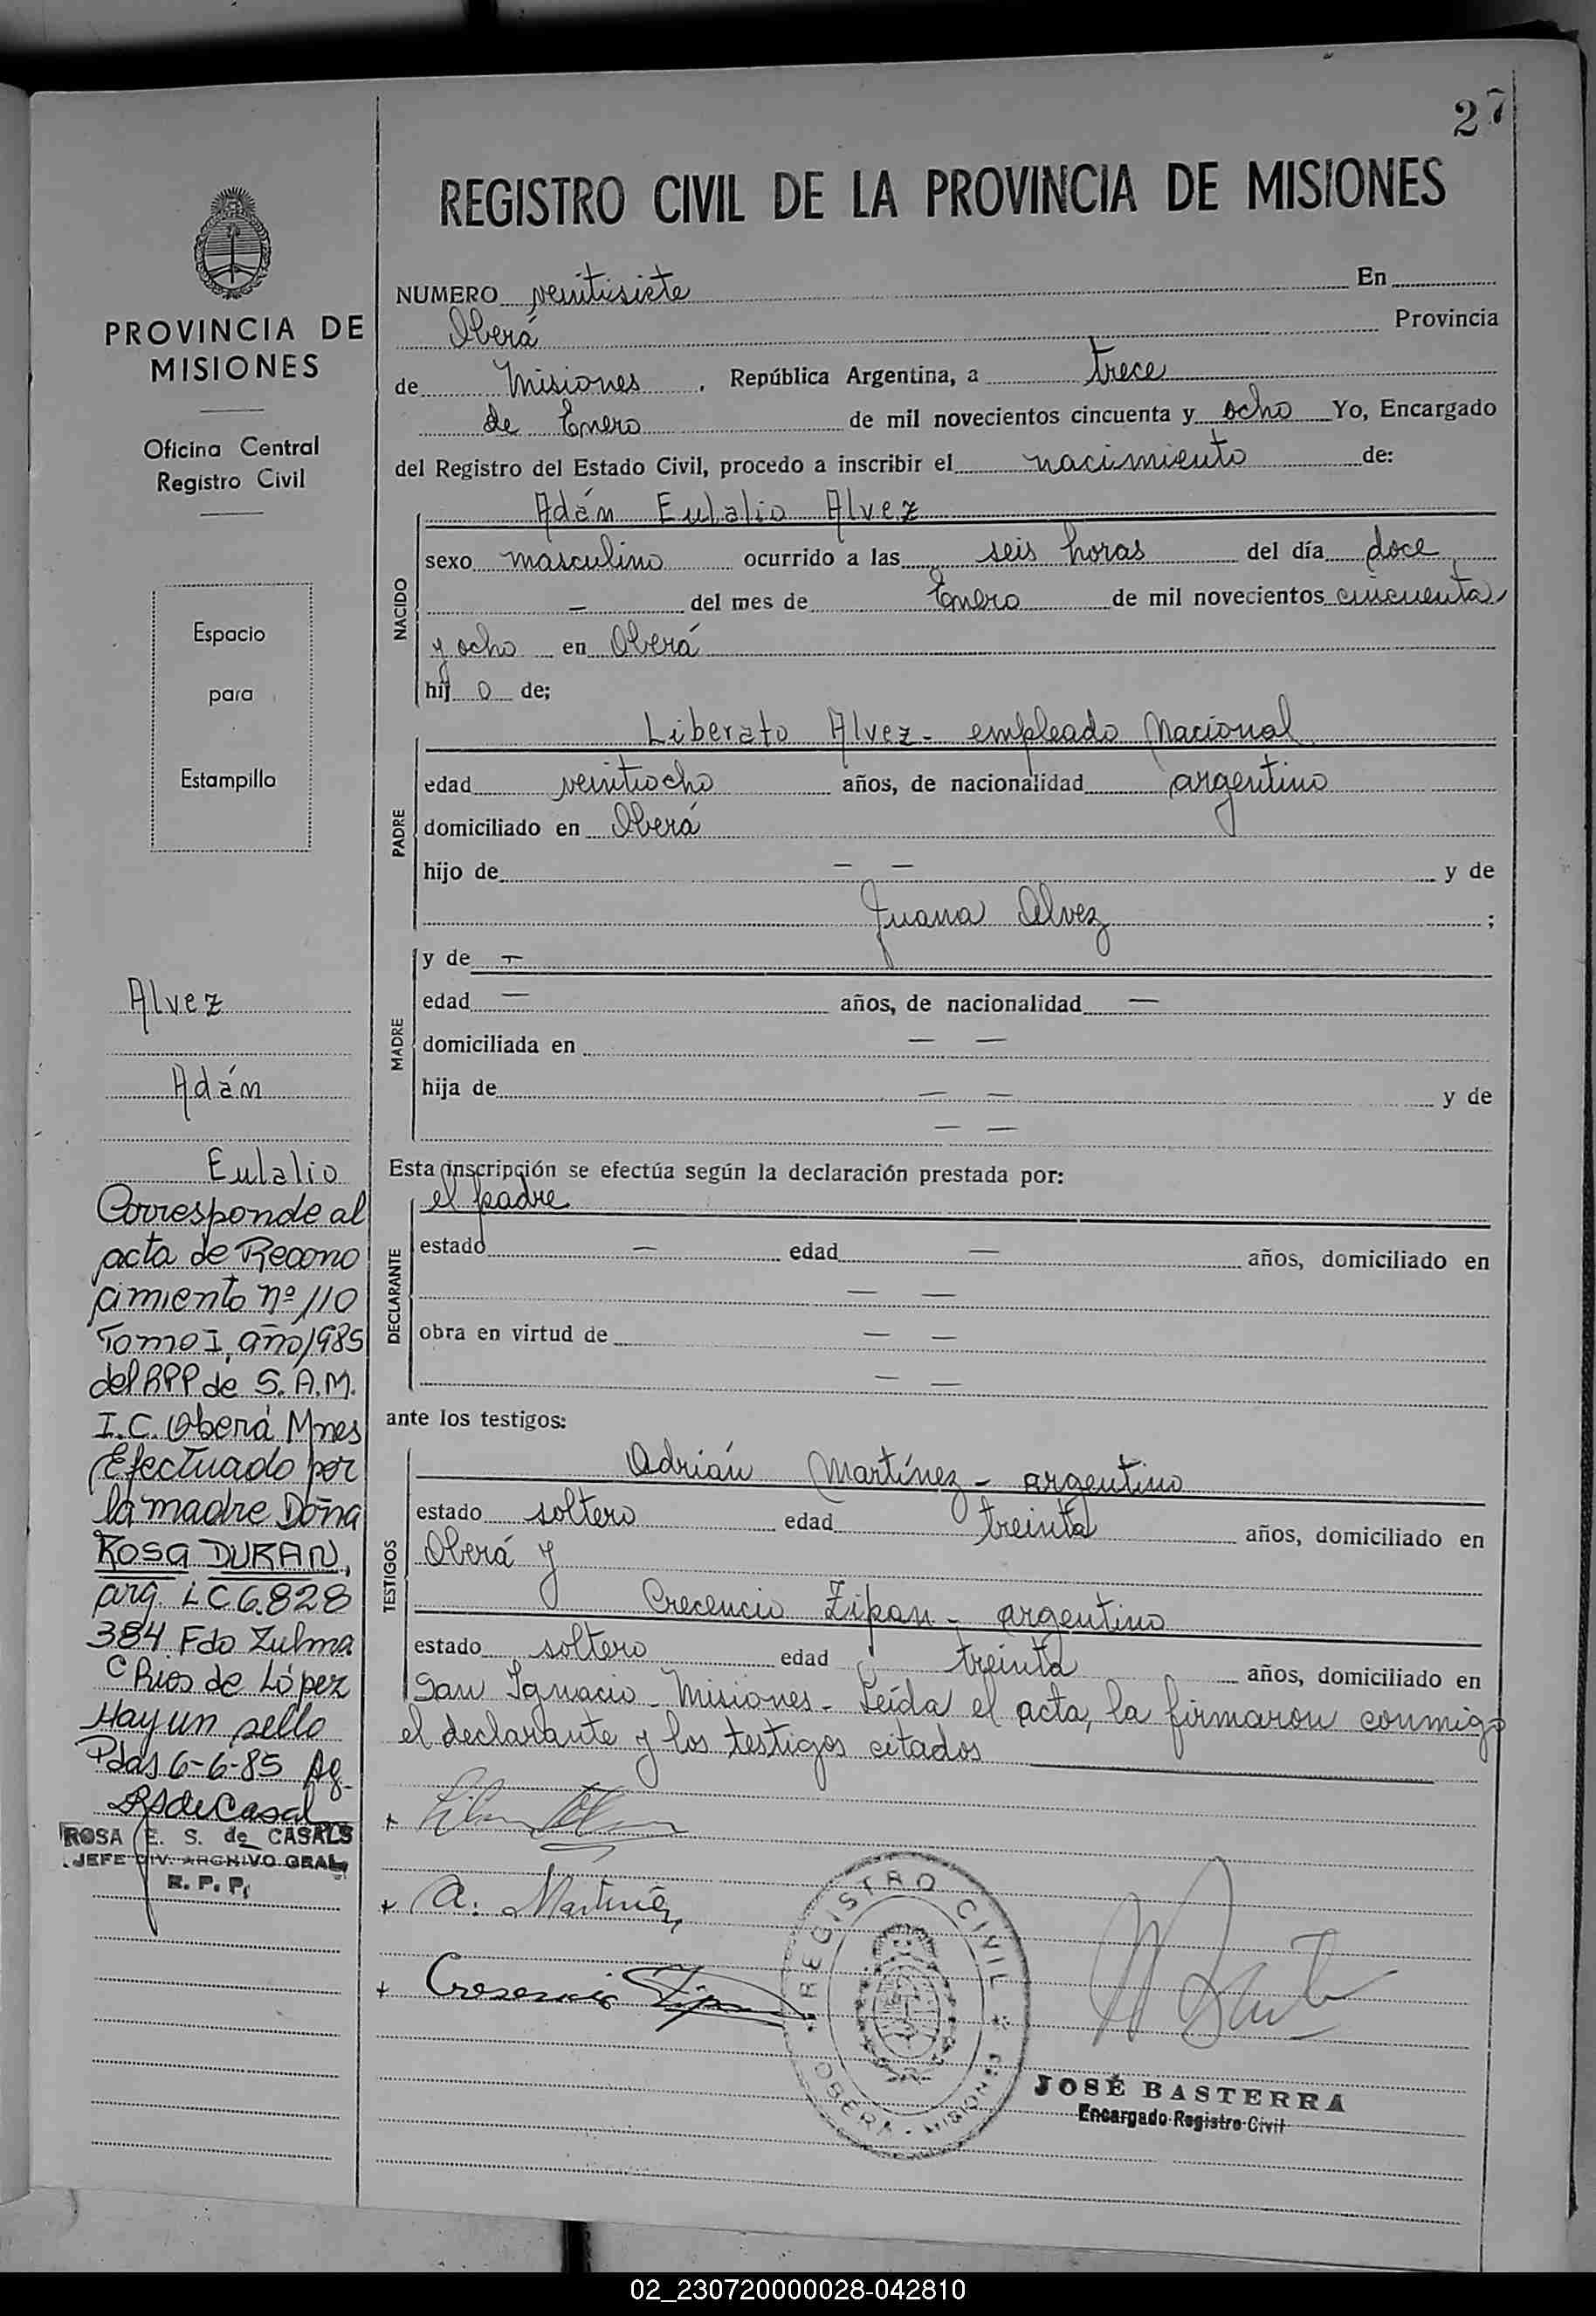 27
REGISTRO CIVIL DE LA PROVINCIA DE MISIONES
PROVINCIA DE
MISIONES
Oficina Central
Registro Civil
Espacio
para
Estampilla
Alvez
Adán
Eulalio
Corresponde al
acta de Recono
cimiento nº 110
Tomo I, año 1985
del RPP de S.A.M.
I.C. Oberá Mnes
Efectuado por
la madre Doña
Rosa DURAN,
arg. LC 6.828
384 Fdo Zulma
C Rios de López
Hay un sello
Pdas 6-6-85 Ag.
RSdeCasals
ROSA E. S. de CASALS
JEFE DIV. ARCHIVO GRAL.
R. P. P.
NUMERO veintisiete En
Oberá Provincia
de Misiones, República Argentina, a trece
de Enero de mil novecientos cincuenta y ocho Yo, Encargado
del Registro del Estado Civil, procedo a inscribir el nacimiento de:
NACIDO
Adán Eulalio Alvez
sexo masculino ocurrido a las seis horas del día doce
— del mes de Enero de mil novecientos cincuenta
y ocho en Oberá
hij o de;
PADRE
Liberato Alvez - empleado Nacional
edad veintiocho años, de nacionalidad argentino
domiciliado en Oberá
hijo de — — y de
Juana Alvez ;
MADRE
y de —
edad — años, de nacionalidad —
domiciliada en — —
hija de — — y de
— —
Esta inscripción se efectúa según la declaración prestada por:
DECLARANTE
el padre
estado — edad — años, domiciliado en
— —
obra en virtud de — —
— —
ante los testigos:
TESTIGOS
Adrián Martínez - argentino
estado soltero edad treinta años, domiciliado en
Oberá y
Crecencio Zipan - argentino
estado soltero edad treinta años, domiciliado en
San Ignacio - Misiones - Leída el acta, la firmaron conmigo
el declarante y los testigos citados
A. Martinez
Cresencio Zipan
REGISTRO CIVIL
OBERA - MISIONES
JOSÉ BASTERRA
Encargado Registro Civil
02_230720000028-042810